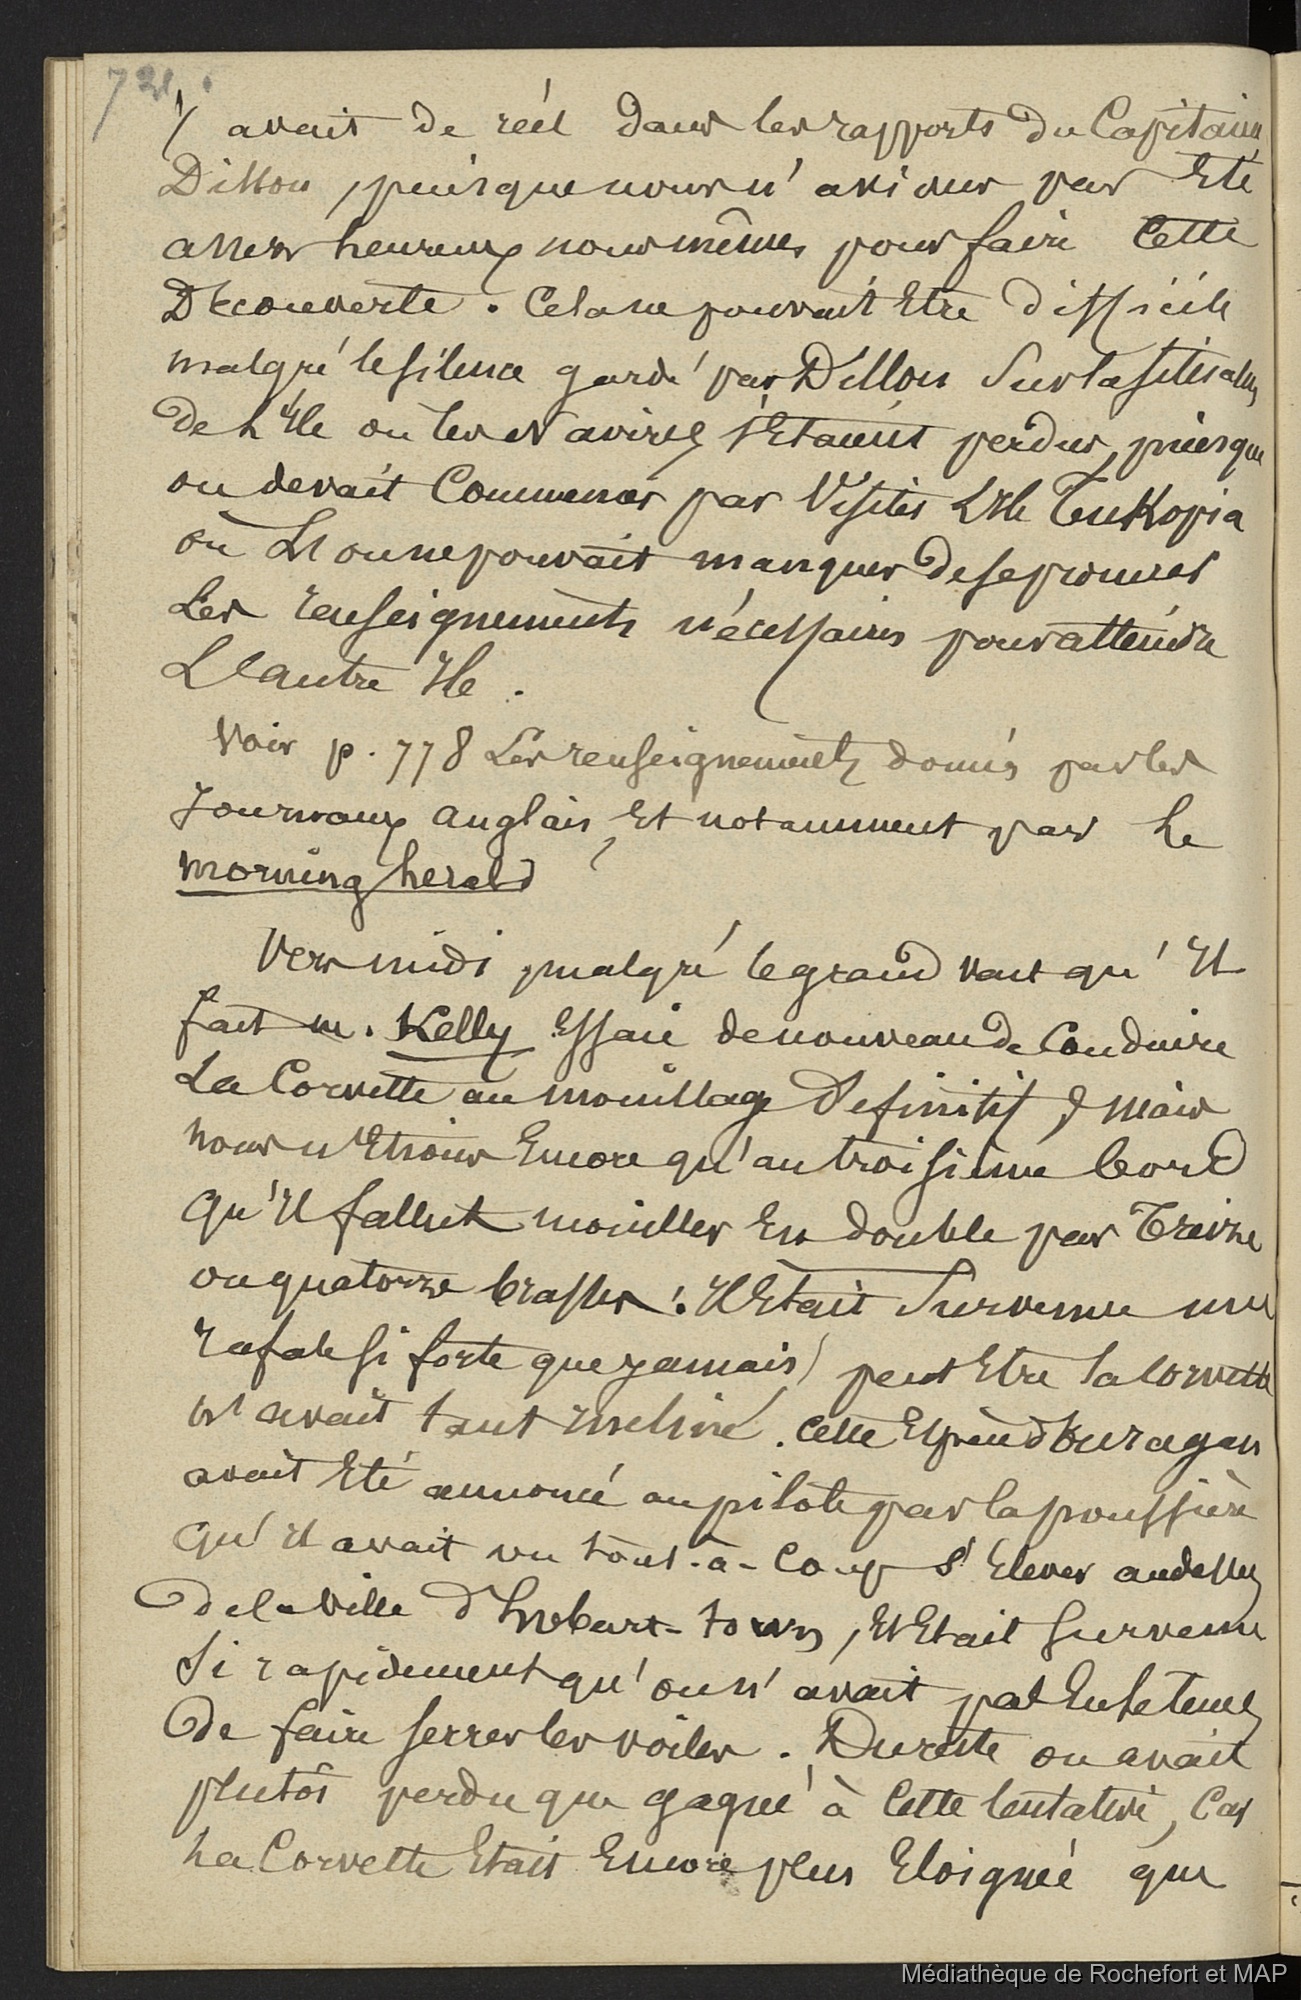 721.
y avait de réel dans les rapports du Capitaine
Dillon, puisque nous n'avions pas Eté
assez heureux nous mêmes pour faire Cette
Découverte. Cela ne pouvait Etre difficile
malgré le silence gardé par Dillon Sur la situation
de L'Ile où les Navires s'Etaient perdus, puisque
on devait Commencer par Visiter L'Ile Tukopia
où L'on ne pouvait manquer de se procurer
Les renseignements nécessaires pour atteindre
L'autre Ile.
Voir p. 778 Les renseignements donnés par les
Journaux anglais, Et notamment par Le
morning herald
Vers midi, malgré le grand vent qu'Il
fait m. Kelly Essaie de nouveau de Conduire
La Corvette au mouillage Définitif, mais
nous n'Etions Encore qu'au troisième bord
qu'Il fallut mouiller En double par Treize
ou quatorze brasses : Il Etait Survenu une
rafale si forte que jamais peut Etre la Corvette
n'avait tant Incliné. Cette Espèce d'ouragan
avait Eté annoncé au pilote par la poussière
qu'Il avait vu tout-à-Coup s'Elever au dessus
de la Ville d'hobart-town, Et Etait Survenu
Si rapidement qu'on n'avait pas Eu le tems
de faire serrer les voiles. Du reste on avait
plutôt perdu que gagné à Cette tentative, Car
La Corvette Etait Encore plus Eloignée que
Médiathèque de Rochefort et MAP